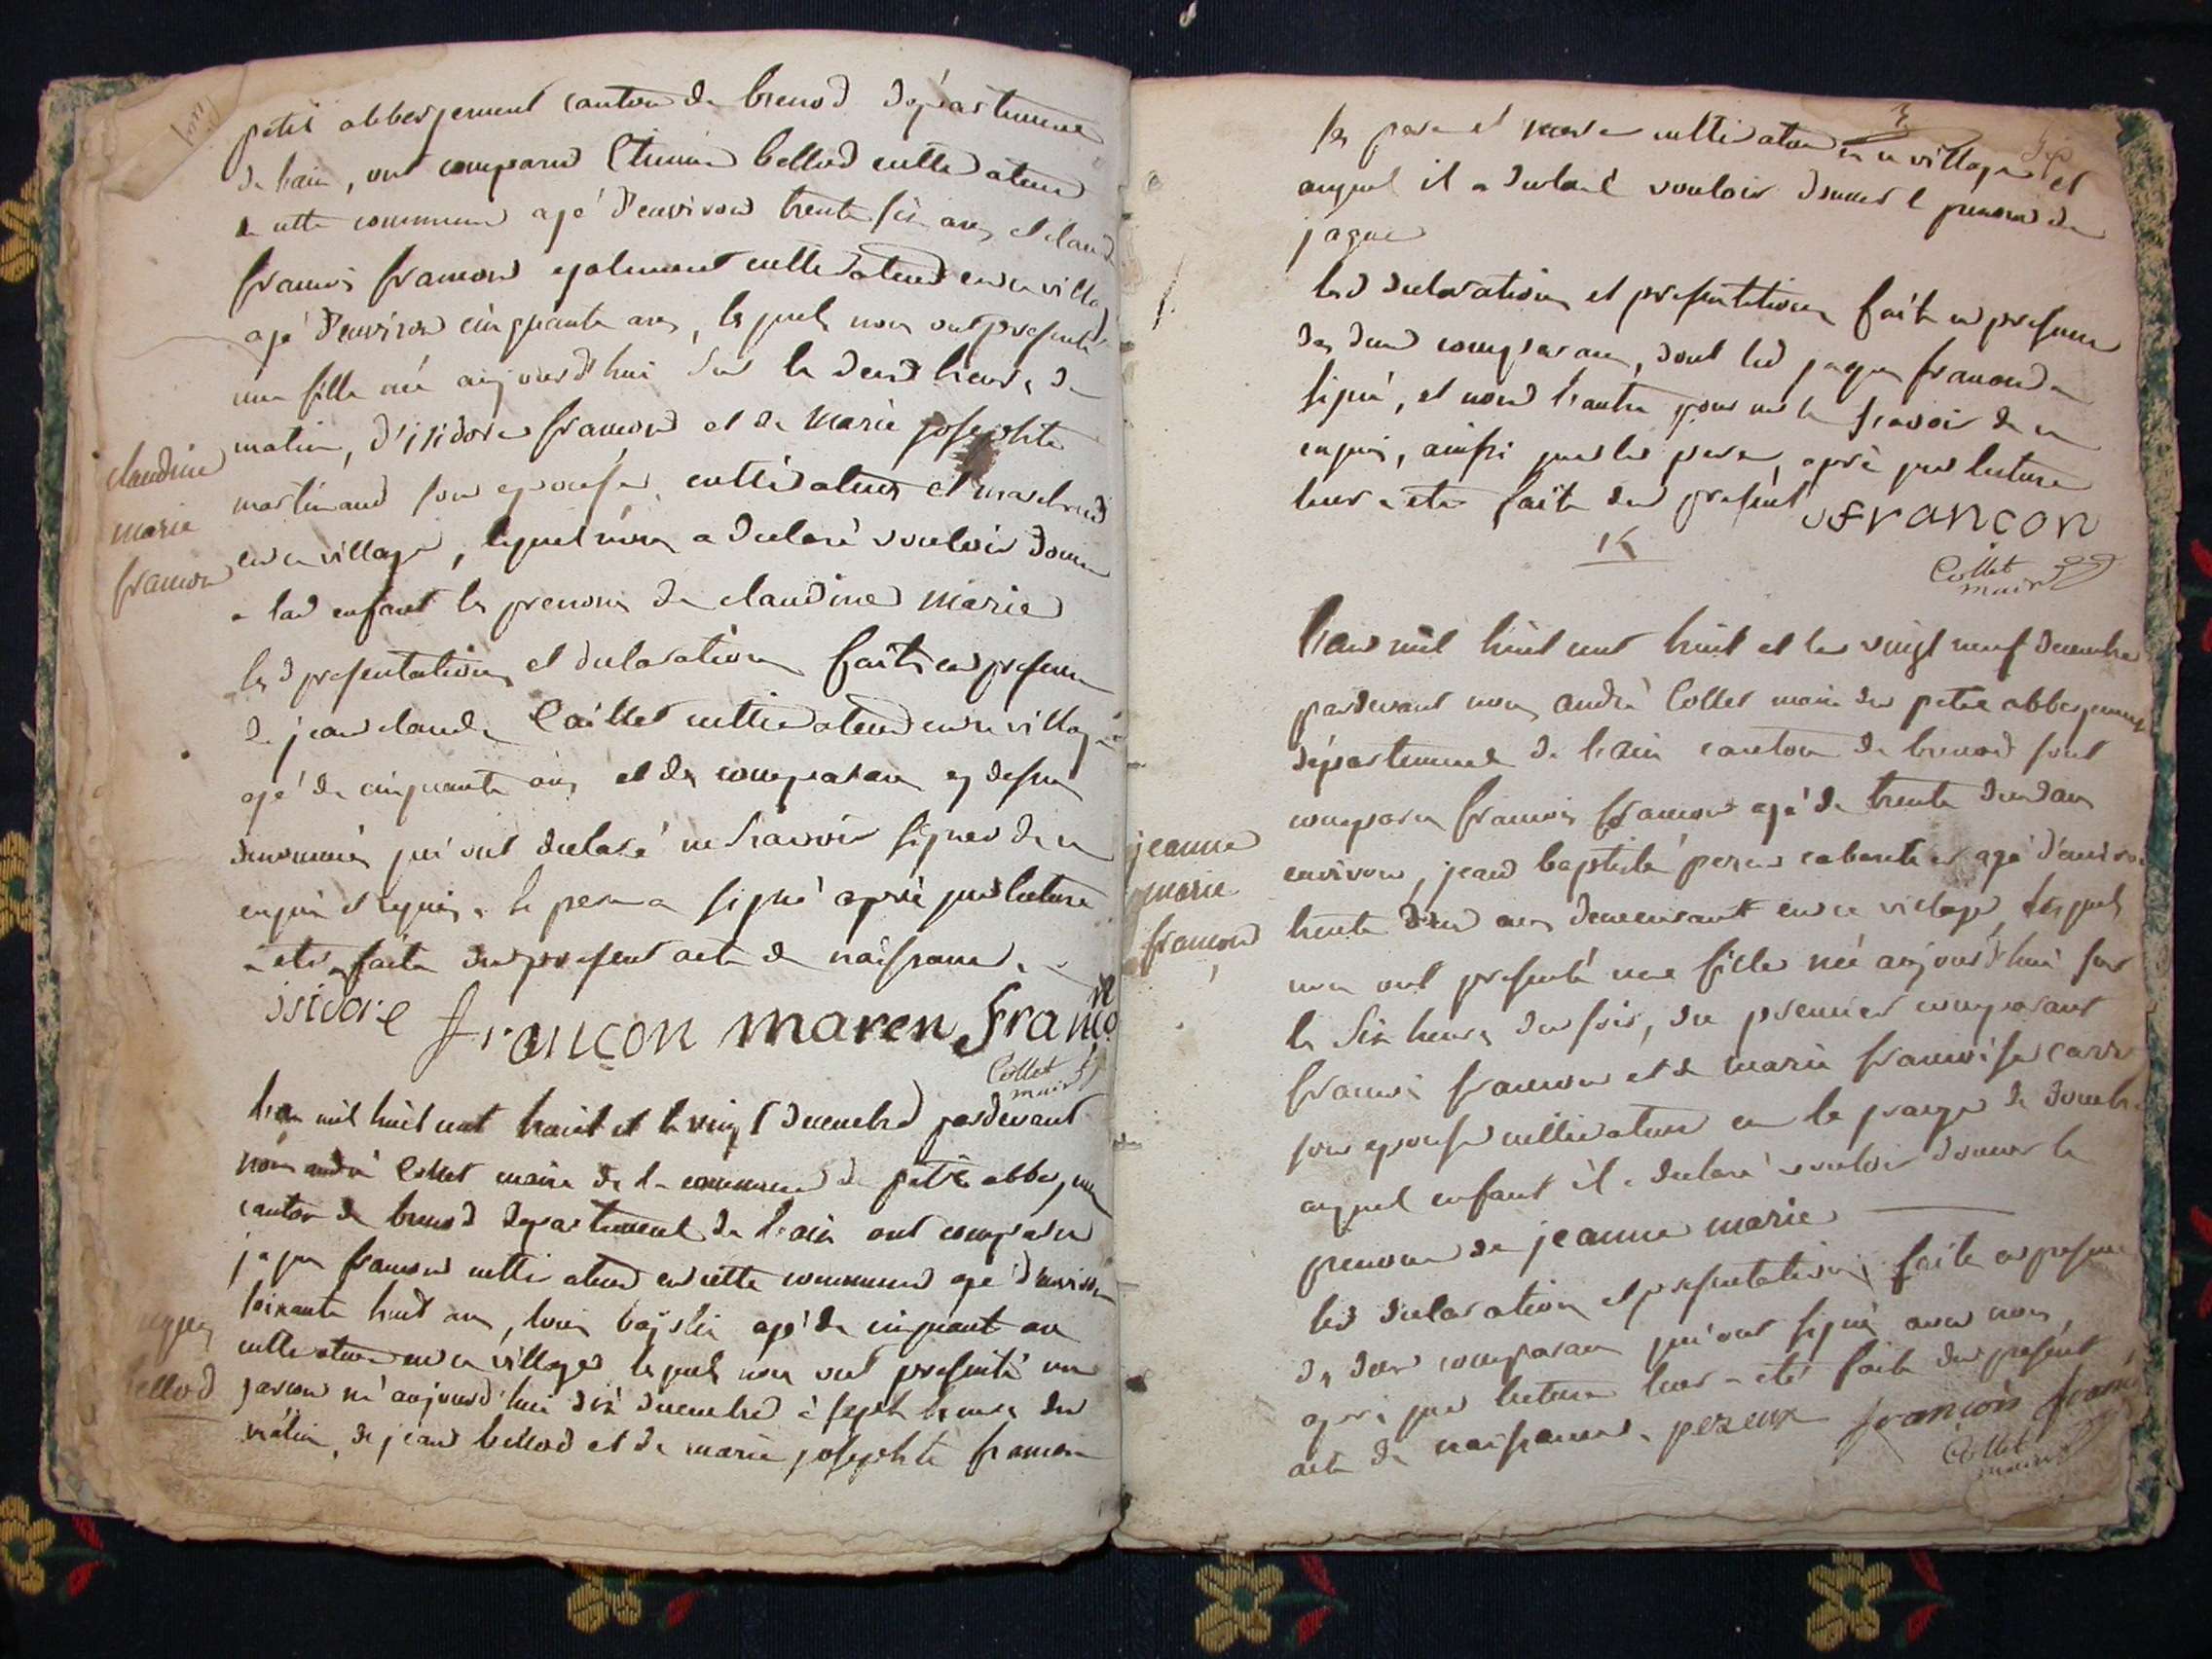 petit abbergement canton de brenod département
de l'ain, ont comparu Etienne bellod cultivateur
de cette commune agé d'environ trente six ans, et claude
françois françon egalement cultivateur en ce village
agé d'environ cinquante ans, lesquels nous ont presenté
une fille née aujourd'hui sur les deux heures du
matin, d'isidore françon et de Marie josephte
martinand son epouse, cultivateur et marchand
en ce village, lequel nous a declaré vouloir donner
a lad enfant les prenoms de claudine Marie
claudine
marie
françon
lesd presentation et declaration faites en presence
de jean claude Caillet cultivateur en ce village
agé de cinquante ans et des comparans cy dessus
denommés qui ont declaré ne scavoir signer de ce
enquis et requis, le pere a signé après que lecture
a été faite du present acte de naissance.
isidore françon maren françon
Collet
maire
L'an mil huit cent huit et le vingt decembre pardevant
nous andré Collet maire de la commune du petit abbergement
canton de brenod departement de l'ain ont comparu
jaque françon cultivateur en cette commune agé d'environ
soixante huit ans, agé de cinquante ans
cultivateur en ce village lesquels nous ont presenté un
garcon né aujourd'hui dix decembre à sept heures du
matin, de jean bellod et de marie josephte françon
bellod
3
ses pere et mere cultivateur en ce village et
auquel il a declaré vouloir donner le prenom de
jaque
lesd declaration et presentation faite en presence
des deux comparans, dont led jaque françon a
signé, et non l'autre pour ne le scavoir de ce
enquis, ainsi que le pere, après que lecture
leur a été faite du present françon
Collet
maire
L'an mil huit cent huit et le vingt neuf decembre
pardevant nous andré Collet maire du petit abbergement
département de l'ain canton de brenod sont
comparu françois françon agé de trente deux ans
environ, jean baptiste pereux cabaretier agé d'environ
trente deux ans demeurant en ce village, lesquels
nous ont presenté une fille née aujourd'hui sur
les six heures du soir, du premier comparant
françois françon et de marie françoise
son epouse cultivateur en la grange de
auquel enfant il a declaré vouloir donner le
prenom de jeanne marie
jeanne
marie
françon
lesd declaration et presentation faite en presence
des deux comparans qui ont signé avec nous,
après que lecture leur a été faite du present
acte de naissance. pereux françois françon
Collet
maire